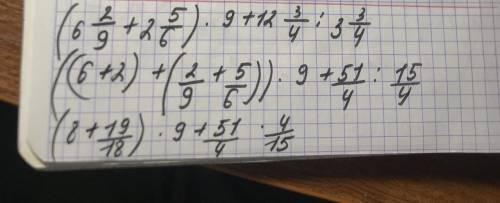 (6 2/9 + 2 5/6) · 9 + 12 3/4 : 3 3/4
((6 + 2) + (2/9 + 5/6)) · 9 + 51/4 : 15/4
(8 + 19/18) · 9 + 51/4 · 4/15